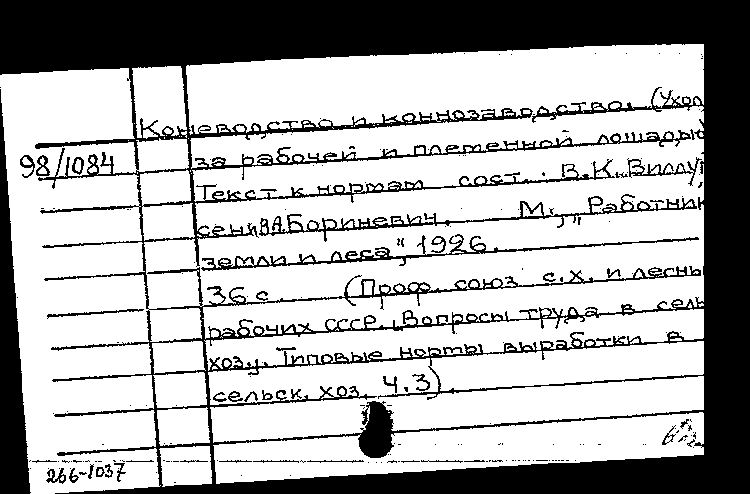 Коневодство и коннозаводство. (Уход
98/1084 за рабочей и племенной лошадью)
Текст к нормам сост.: В.К. Виллу
сен и В.А. Бориневич. М., „Работник
земли и леса", 1926.
36 с. (Проф. союз с.х. и лесны
рабочих СССР. „Вопросы труда в сель
хоз.". Типовые нормы выработки в
сельск. хоз. Ч.3).
266-1037